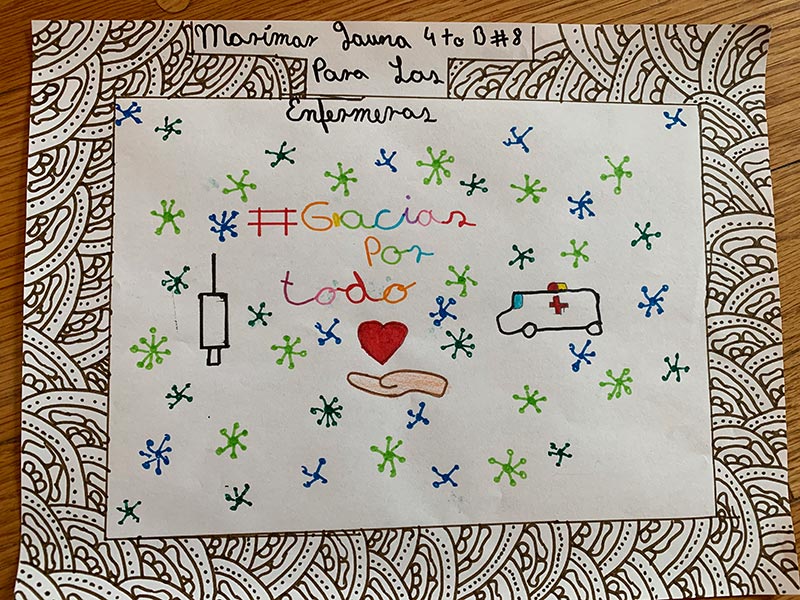 Marímar Gauna 4to B #8
Para Las
Enfermeras
#Gracias
Por
todo